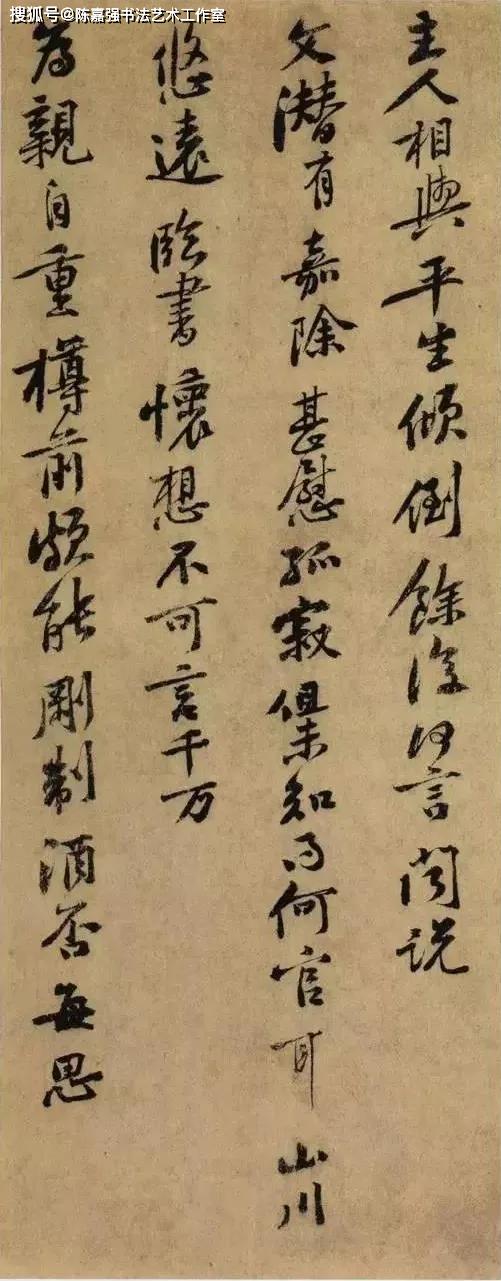 搜狐号@陈嘉强书法艺术工作室
主人相與平生傾倒餘復何言聞説
文潛有嘉除甚慰孤寂但未知得何官耳山川
悠遠臨書懷想不可言千万
為親自重樽前頗能剛制酒否每思